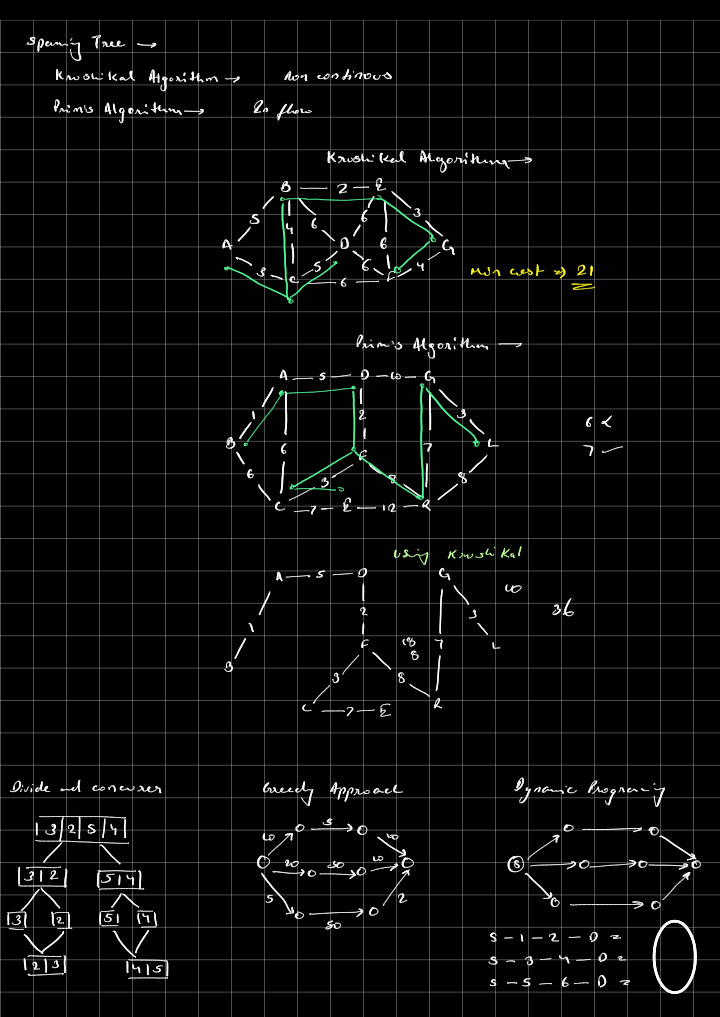 Spaning Tree →
Kroshikal Algorithm → Non continous
Prim's Algorithm → In flow
Kroshikal Algorithm →
B — 2 — E
5 4 6 6 3
A D 6 G
3 C 5 6 F 4
6
Min cost ⇒ 21
Prim's Algorithm →
A — 5 — D — 10 — G
1 2 3
B 6 F 7 L
6 3 8 8
C — 7 — E — 12 — R
6 <
7 ✓
Using Kroshikal
A — 5 — D G
10
1 2 3 36
B F 18 7 L
8
3 8
C — 7 — E R
Divide and concurer
3 2 5 4
3 2 5 4
3 2 5 4
2 3 4 5
Greedy Approach
5
10 10
20 50 10
5 2
50
Dynamic Programing
S
S - 1 - 2 - D =
S - 3 - 4 - D =
S - 5 - 6 - D =